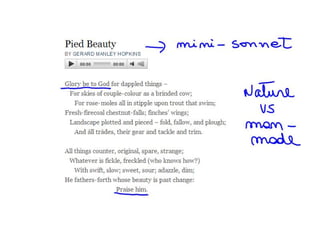 Pied Beauty → mini-sonnet
BY GERARD MANLEY HOPKINS
Glory be to God for dappled things –
For skies of couple-colour as a brinded cow;
For rose-moles all in stipple upon trout that swim;
Fresh-firecoal chestnut-falls; finches' wings;
Landscape plotted and pieced – fold, fallow, and plough;
And áll trádes, their gear and tackle and trim.
All things counter, original, spare, strange;
Whatever is fickle, freckled (who knows how?)
With swift, slow; sweet, sour; adazzle, dim;
He fathers-forth whose beauty is past change:
Praise him.
Nature
vs
man-
made